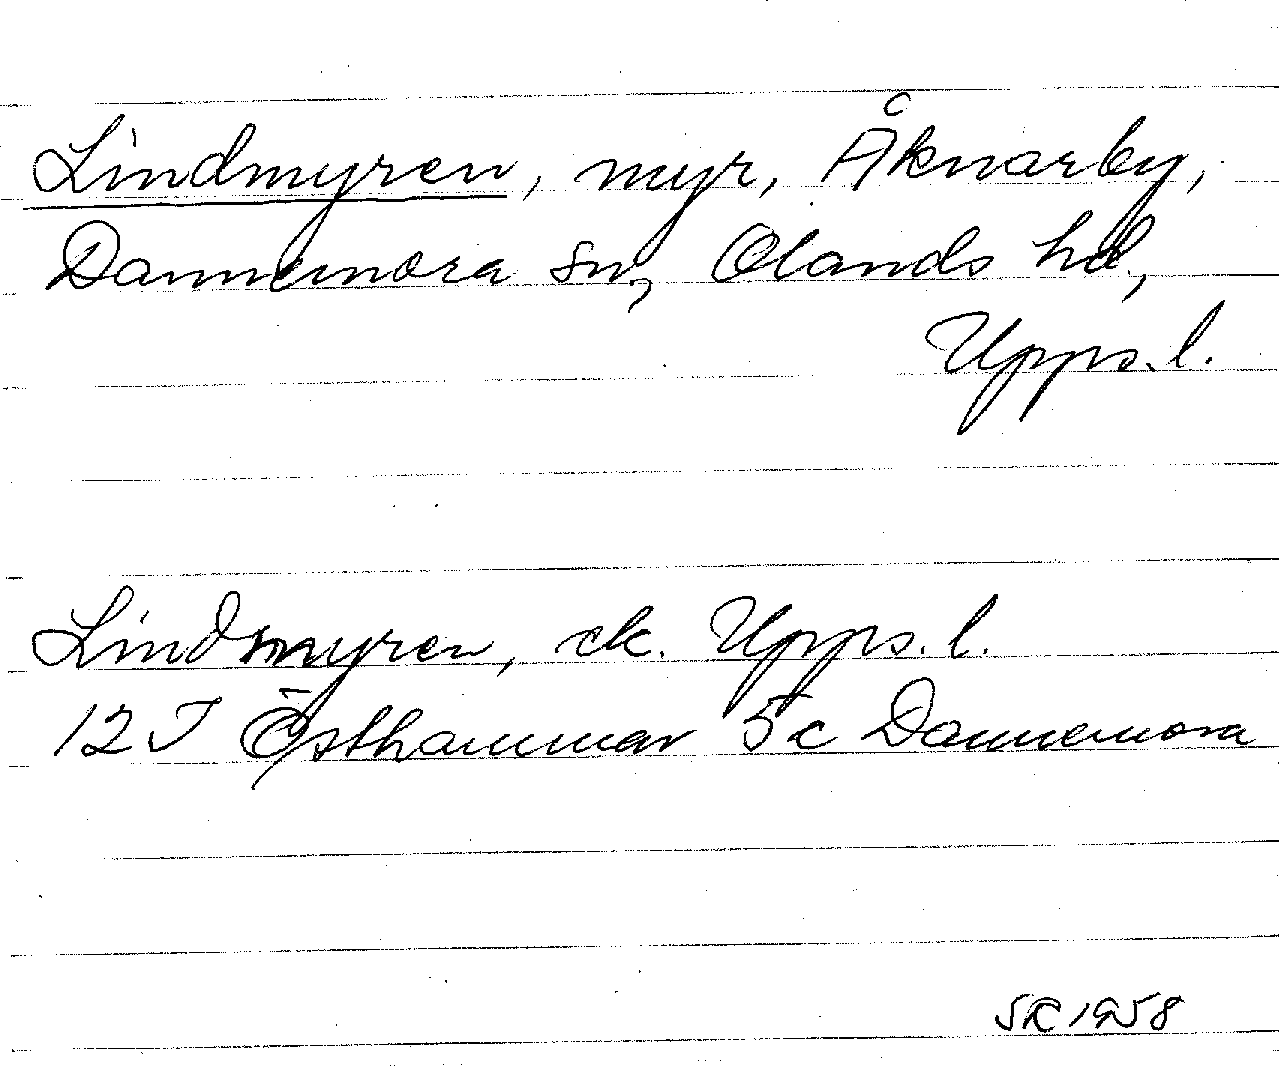 Lindmyren, myr, Åknarby,
Dannemora sn, Olands hd,
Upps. l.
Lindmyren, ek. Upps. l.
12 I Östhammar 5c Dannemora
SR 1958